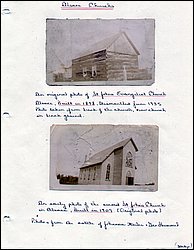 Alsace Churchs
An original photo of St Johns Evangelical Church
Alsace, Built in 1898. Dismantled June 1935
Photo taken from back of the church, new church
in back ground.
An early photo of the second St Johns Church
in Alsace, Built in 1907 (Original photo)
Photos from the estate of Johanna